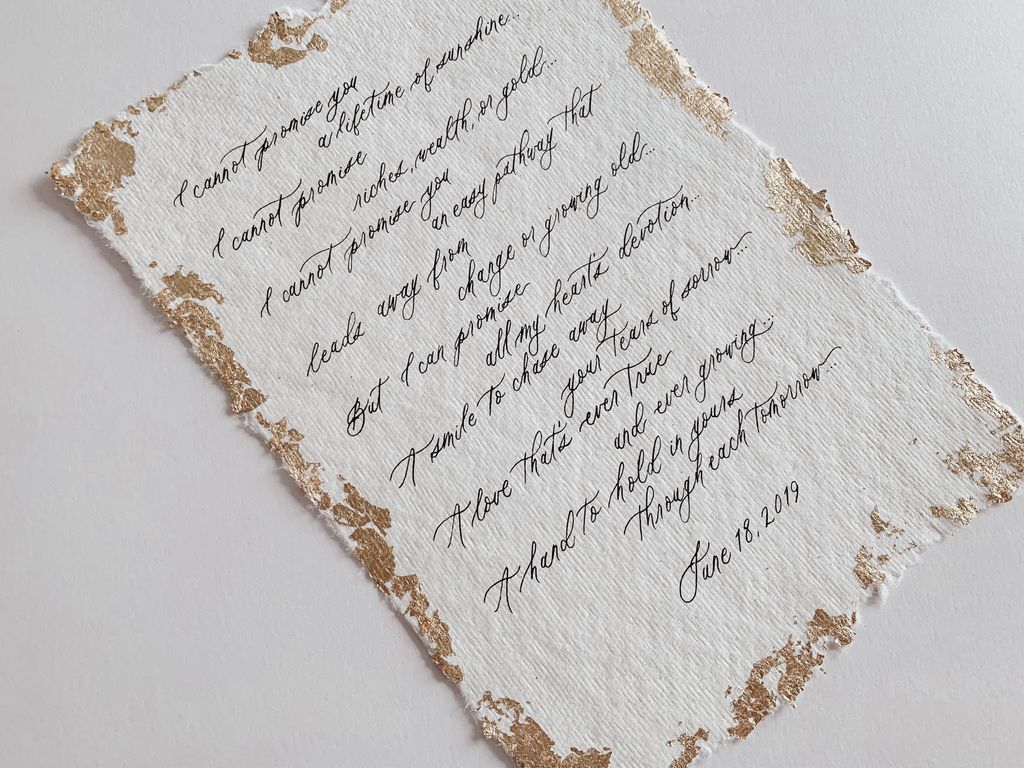 I cannot promise you
a lifetime of sunshine...
I cannot promise
riches, wealth, or gold...
I cannot promise you
an easy pathway that
leads away from
change or growing old...
But I can promise
all my hearts devotion...
A smile to chase away
your tears of sorrow...
A love that's ever true
and ever growing...
A hand to hold in yours
through each tomorrow...
June 18, 2019